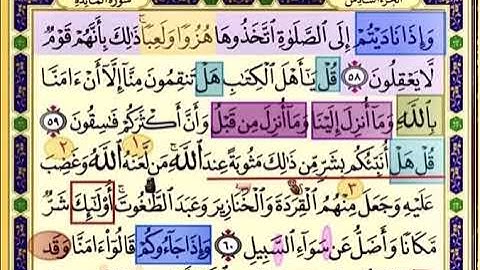 الجزء السادس سورة المائدة
وَإِذَا نَادَيْتُمْ إِلَى الصَّلَوٰةِ اتَّخَذُوهَا هُزُوًا وَلَعِبًا ۚ ذَٰلِكَ بِأَنَّهُمْ قَوْمٌ
لَّا يَعْقِلُونَ ٥٨ قُلْ يَـٰٓأَهْلَ الْكِتَـٰبِ هَلْ تَنقِمُونَ مِنَّآ إِلَّآ أَنْ ءَامَنَّا
بِاللَّهِ وَمَآ أُنزِلَ إِلَيْنَا وَمَآ أُنزِلَ مِن قَبْلُ وَأَنَّ أَكْثَرَكُمْ فَـٰسِقُونَ ٥٩
قُلْ هَلْ أُنَبِّئُكُم بِشَرٍّ مِّن ذَٰلِكَ مَثُوبَةً عِندَ اللَّهِ ۚ مَن لَّعَنَهُ اللَّهُ وَغَضِبَ
عَلَيْهِ وَجَعَلَ مِنْهُمُ الْقِرَدَةَ وَالْخَنَازِيرَ وَعَبَدَ الطَّـٰغُوتَ ۚ أُو۟لَـٰٓئِكَ شَرٌّ
مَّكَانًا وَأَضَلُّ عَن سَوَآءِ السَّبِيلِ ٦٠ وَإِذَا جَآءُوكُمْ قَالُوٓا۟ ءَامَنَّا وَقَد